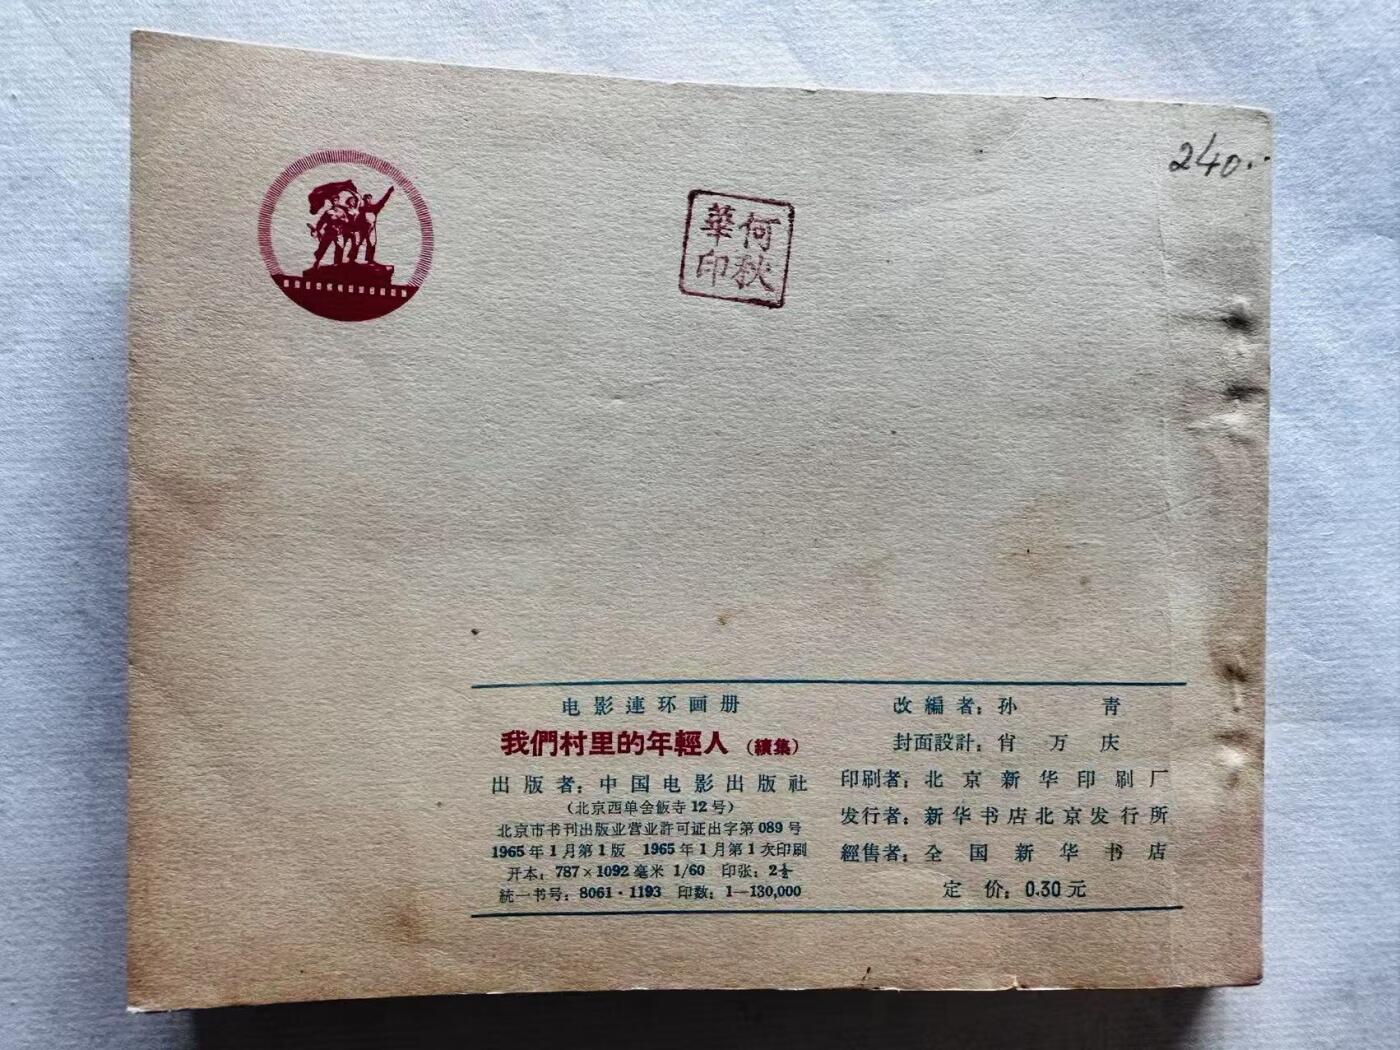 240..
何秋
華印
电影連环画册
我們村里的年輕人（續集）
出版者：中国电影出版社
（北京西单舍飯寺12号）
北京市书刊出版业营业許可证出字第089号
1965年1月第1版 1965年1月第1次印刷
开本：787×1092毫米 1/60 印张：2⅘
統一书号：8061·1193 印数：1—130,000
改編者：孙青
封面設計：肖万庆
印刷者：北京新华印刷厂
发行者：新华书店北京发行所
經售者：全国新华书店
定价：0.30元